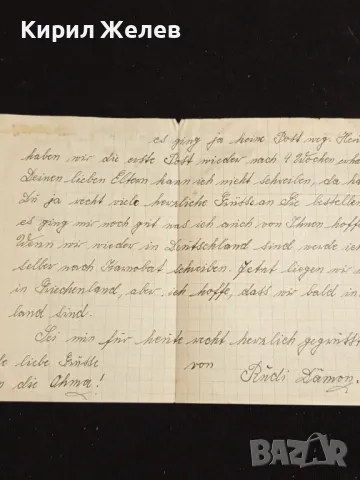 Кирил Желев
es ging ja keine Post weg. Heu
haben wir die erste Post wieder nach 4 Wochen erha
Deinen lieben Eltern kann ich nicht schreiben, da ka
Du ja recht viele herzliche Grüsse an Sie bestellen
es ging mir noch gut was ich auch von Ihnen hoffe
Wenn wir wieder in Deutschland sind werde ich
selber nach Karnobat schreiben. Jetzt liegen wir
in Griechenland, aber ich hoffe, dass wir bald in
land sind.
Sei nun für heute recht herzlich gegrüsst
liebe Grüsse von Rudi Damon
die Ohma!
bazar